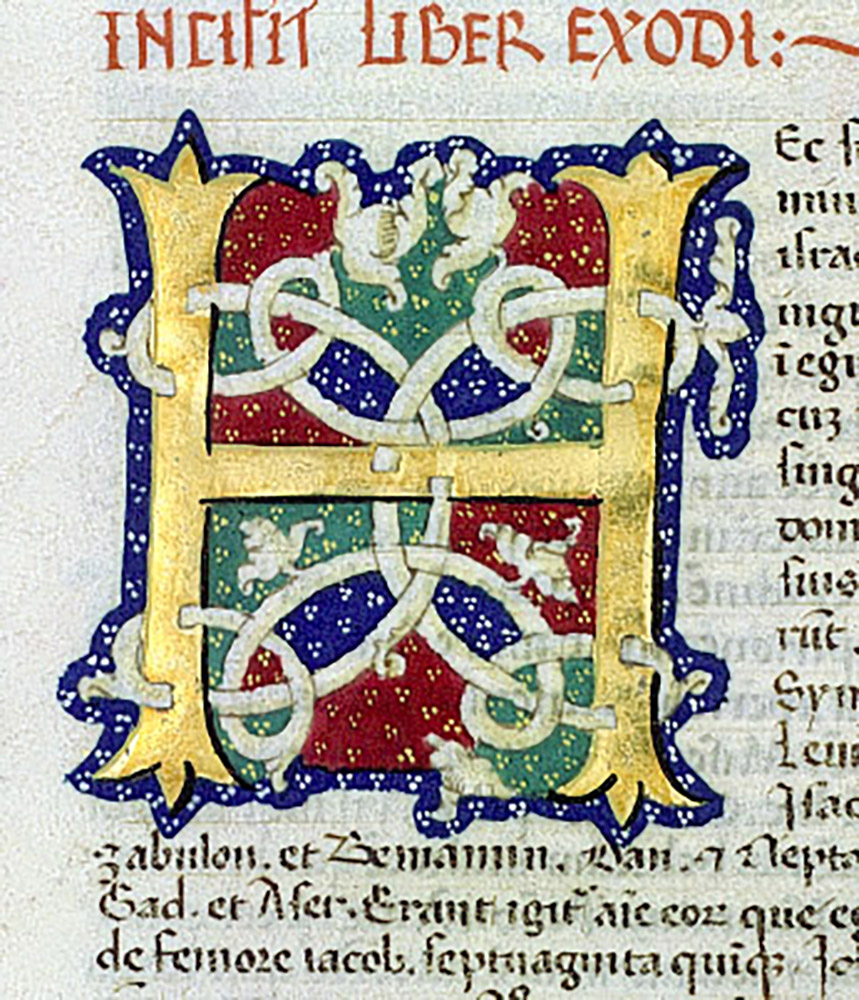 INCIPIT LIBER EXODI:~
H
Ec
israe
ingr
i egi
cuz
sing
dom
rūt.
Sym
Leui
Isac
zabulon. et Beniamin. Dan. ⁊ Nepta
Gad. et Aser. Erant igit̄ aīe eoꝝ que eg
de femore iacob. septuaginta quinqꝫ Jo